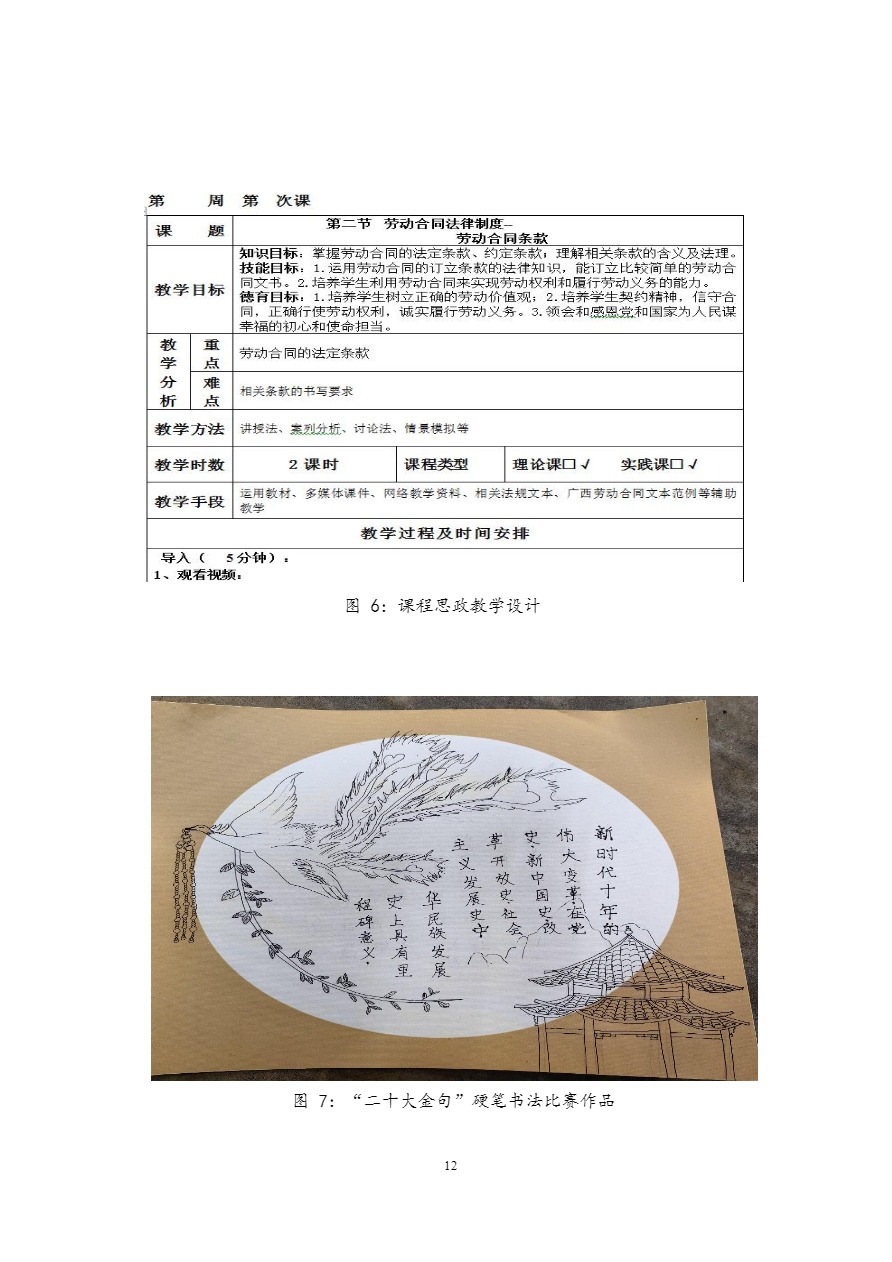 第 周 第 次课
课 题
第二节 劳动合同法律制度—
劳动合同条款
教学目标
知识目标：掌握劳动合同的法定条款、约定条款；理解相关条款的含义及法理。
技能目标：1.运用劳动合同的订立条款的法律知识，能订立比较简单的劳动合
同文书。2.培养学生利用劳动合同来实现劳动权利和履行劳动义务的能力。
德育目标：1.培养学生树立正确的劳动价值观；2.培养学生契约精神，信守合
同，正确行使劳动权利，诚实履行劳动义务。3.领会和感恩党和国家为人民谋
幸福的初心和使命担当。
教学分析
重点
劳动合同的法定条款
难点
相关条款的书写要求
教学方法
讲授法、案列分析、讨论法、情景模拟等
教学时数
2 课时
课程类型
理论课□√ 实践课□√
教学手段
运用教材、多媒体课件、网络教学资料、相关法规文本、广西劳动合同文本范例等辅助
教学
教学过程及时间安排
导入（ 5分钟）：
1、观看视频：
图 6：课程思政教学设计
新时代十年的
伟大变革在党
史、新中国史、改
革开放史、社会
主义发展史、中
华民族发展
史上具有里
程碑意义。
图 7：“二十大金句”硬笔书法比赛作品
12